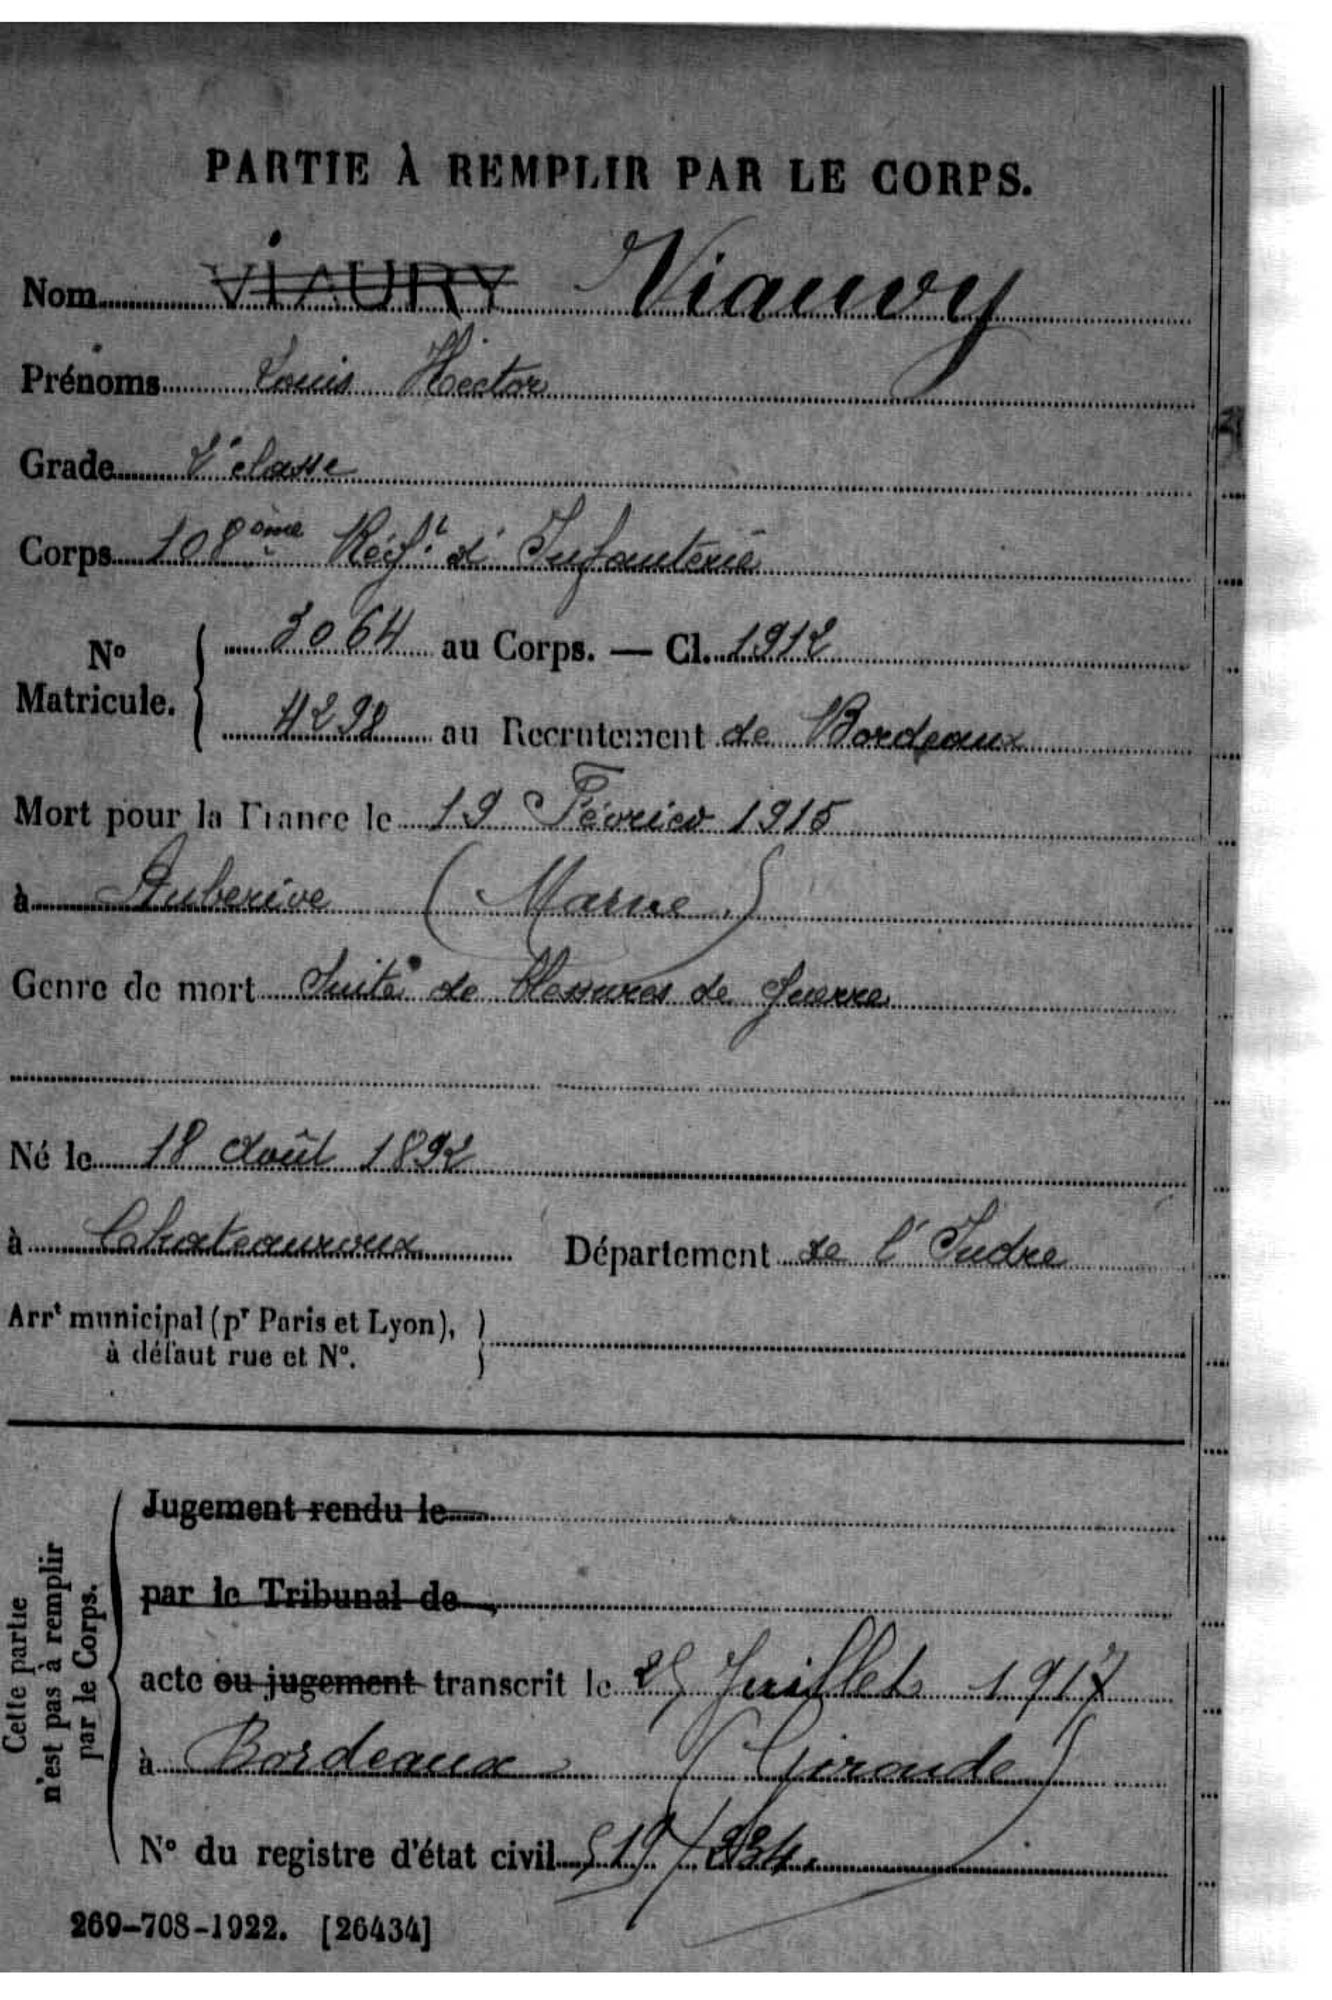 PARTIE À REMPLIR PAR LE CORPS.
Nom VIAURY Viauvy
Prénoms Louis Hector
Grade 2e classe
Corps 108ème Régt d'Infanterie
No Matricule. 3064 au Corps. — Cl. 1912
4298 au Recrutement de Bordeaux
Mort pour la France le 19 Février 1915
à Auberive (Marne)
Genre de mort Suite de blessures de guerre
Né le 18 Août 1892
à Chateauroux Département de l'Indre
Arrt municipal (pr Paris et Lyon),
à défaut rue et No.
Cette partie n'est pas à remplir par le Corps.
Jugement rendu le
par le Tribunal de
acte ou jugement transcrit le 25 Juillet 1917
à Bordeaux (Gironde)
No du registre d'état civil 519/234.
269-708-1922. [26434]